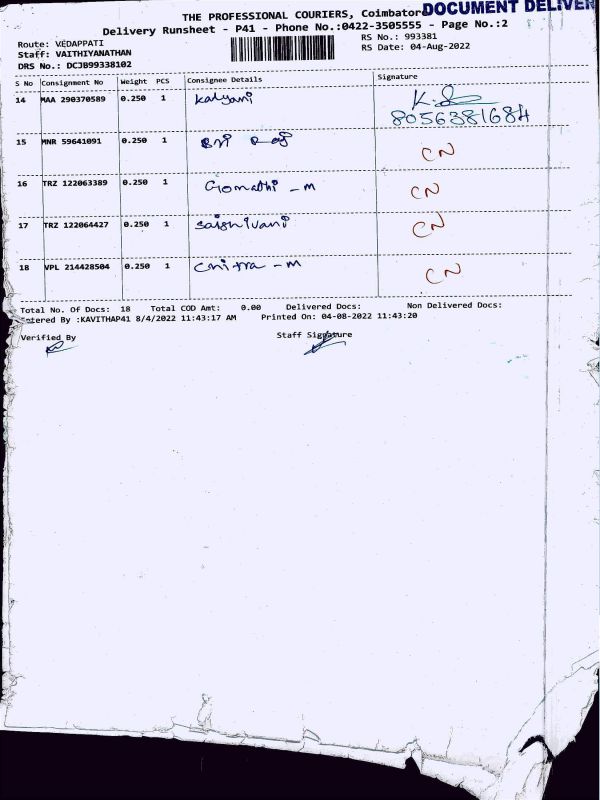 THE PROFESSIONAL COURIERS, Coimbator DOCUMENT DELIVER
Delivery Runsheet - P41 - Phone No.:0422-3505555 - Page No.:2
Route: VEDAPPATI
RS No.: 993381
Staff: VAITHIYANATHAN
RS Date: 04-Aug-2022
DRS No.: DCJB99338102
S No Consignment No Weight PCS Consignee Details Signature
14 MAA 290370589 0.250 1 Kalyani
8056381684
15 MNR 59641091 0.250 1 Sri CN
16 TRZ 122063389 0.250 1 Gomathi - M CN
17 TRZ 122064427 0.250 1 Saishivani CN
18 VPL 214428504 0.250 1 Chitra - M CN
Total No. Of Docs: 18 Total COD Amt: 0.00 Delivered Docs: Non Delivered Docs:
ntered By :KAVITHAP41 8/4/2022 11:43:17 AM Printed On: 04-08-2022 11:43:20
Verified By Staff Signature